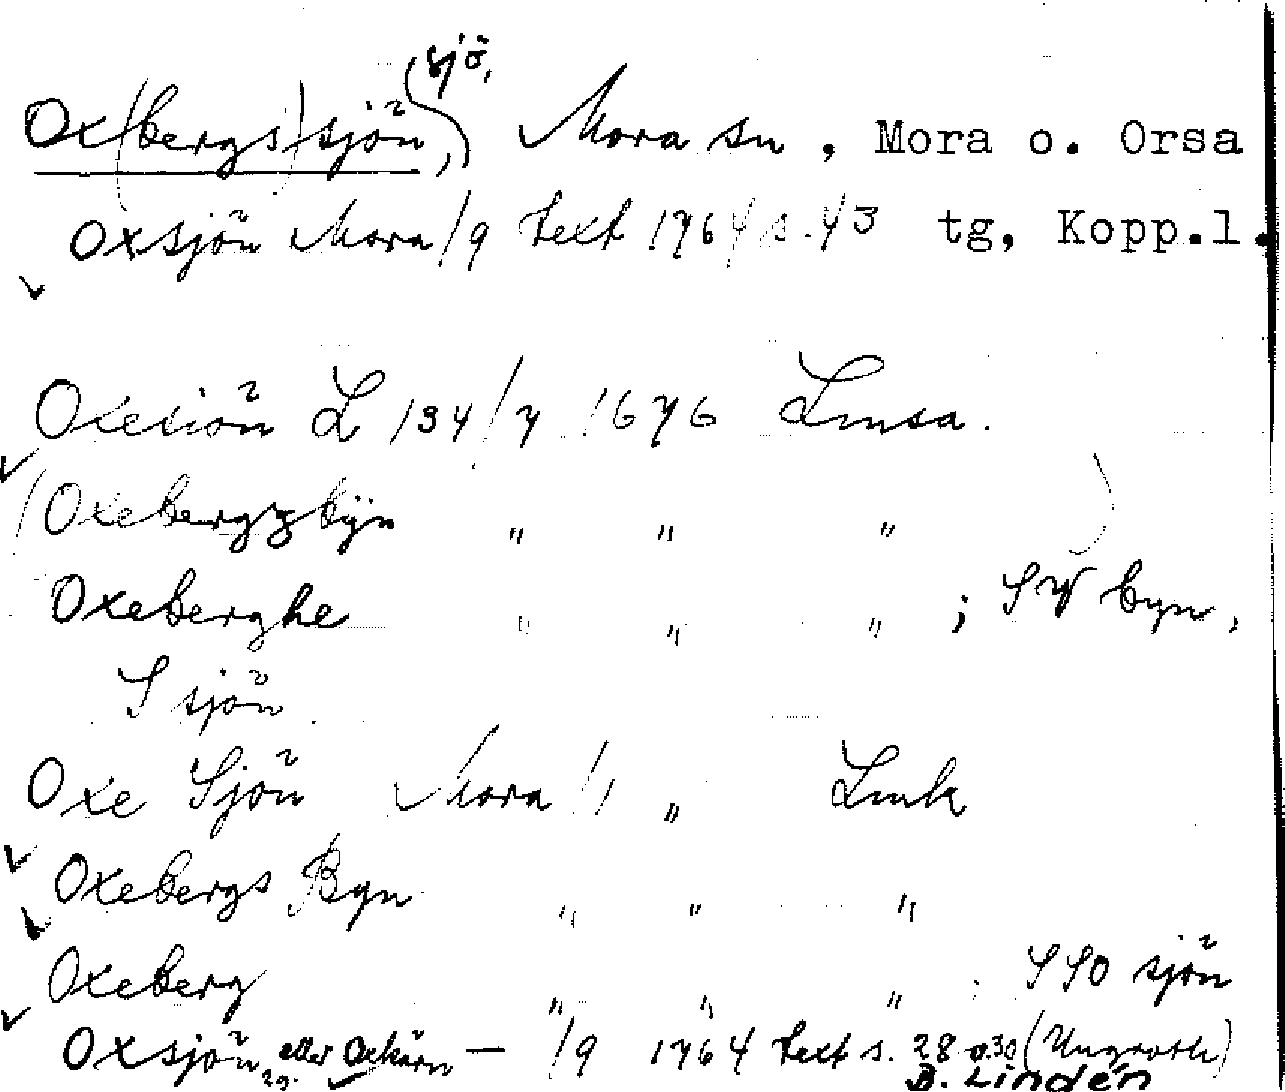 sjö,
Ox(bergs)sjön, Mora sn, Mora o. Orsa
Oxsjön Mora/9 text 1764 s. 43 tg, Kopp.l.
Oxesiön L 134/7 1676 Lmsa.
(Oxebergzbÿn " " ")
Oxeberghe " " " ; SV byn,
S sjön.
Oxe Sjön Mora 1/1 " Lmk
Oxebergs Byn " " "
Oxeberg " " " . SSO sjön
Oxsjön eller Oxkärn — /9 1764 text s. 28 o. 30 (Ungroth)
29. B. Lindén